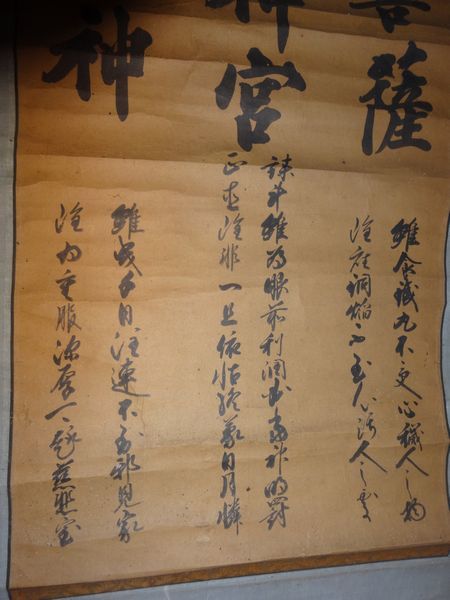 菩薩
雖食鐵丸不受心穢人之物
雖座銅焔不到心汚人之處
神宮
謀計雖為眼前利潤必當神明罰
正直雖非一旦依怙終蒙日月憐
神
雖曳千日注連不到邪見家
雖為重服深厚可趣慈悲室